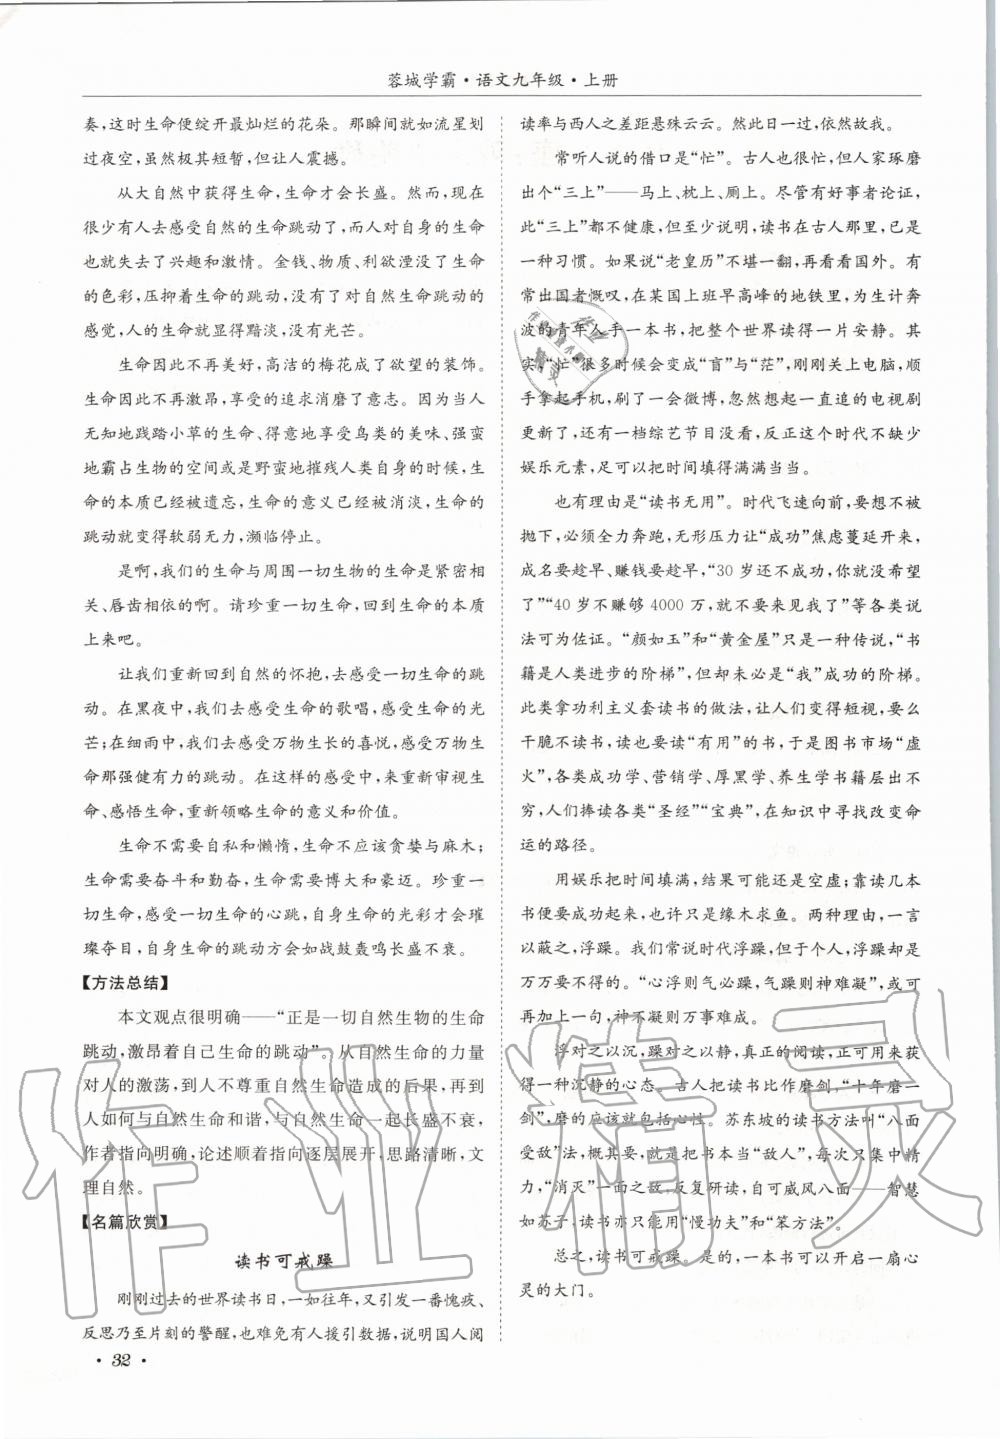 蓉城学霸·语文九年级·上册
奏,这时生命便绽开最灿烂的花朵。那瞬间就如流星划
过夜空,虽然极其短暂,但让人震撼。
从大自然中获得生命,生命才会长盛。然而,现在
很少有人去感受自然的生命跳动了,而人对自身的生命
也就失去了兴趣和激情。金钱、物质、利欲湮没了生命
的色彩,压抑着生命的跳动,没有了对自然生命跳动的
感觉,人的生命就显得黯淡,没有光芒。
生命因此不再美好,高洁的梅花成了欲望的装饰。
生命因此不再激昂,享受的追求消磨了意志。因为当人
无知地践踏小草的生命、得意地享受鸟类的美味、强蛮
地霸占生物的空间或是野蛮地摧残人类自身的时候,生
命的本质已经被遗忘,生命的意义已经被消淡,生命的
跳动就变得软弱无力,濒临停止。
是啊,我们的生命与周围一切生物的生命是紧密相
关、唇齿相依的啊。请珍重一切生命,回到生命的本质
上来吧。
让我们重新回到自然的怀抱,去感受一切生命的跳
动。在黑夜中,我们去感受生命的歌唱,感受生命的光
芒;在细雨中,我们去感受万物生长的喜悦,感受万物生
命那强健有力的跳动。在这样的感受中,来重新审视生
命、感悟生命,重新领略生命的意义和价值。
生命不需要自私和懒惰,生命不应该贪婪与麻木;
生命需要奋斗和勤奋,生命需要博大和豪迈。珍重一
切生命,感受一切生命的心跳,自身生命的光彩才会璀
璨夺目,自身生命的跳动方会如战鼓轰鸣长盛不衰。
【方法总结】
本文观点很明确——“正是一切自然生物的生命
跳动,激昂着自己生命的跳动”。从自然生命的力量
对人的激荡,到人不尊重自然生命造成的后果,再到
人如何与自然生命和谐,与自然生命一起长盛不衰,
作者指向明确,论述顺着指向逐层展开,思路清晰,文
理自然。
【名篇欣赏】
读书可戒躁
刚刚过去的世界读书日,一如往年,又引发一番愧疚、
反思乃至片刻的警醒,也难免有人援引数据,说明国人阅
· 32 ·
读率与西人之差距悬殊云云。然此日一过,依然故我。
常听人说的借口是“忙”。古人也很忙,但人家琢磨
出个“三上”——马上、枕上、厕上。尽管有好事者论证,
此“三上”都不健康,但至少说明,读书在古人那里,已是
一种习惯。如果说“老皇历”不堪一翻,再看看国外。有
常出国者慨叹,在某国上班早高峰的地铁里,为生计奔
波的青年人手一本书,把整个世界读得一片安静。其
实,“忙”很多时候会变成“盲”与“茫”,刚刚关上电脑,顺
手拿起手机,刷了一会微博,忽然想起一直追的电视剧
更新了,还有一档综艺节目没看,反正这个时代不缺少
娱乐元素,足可以把时间填得满满当当。
也有理由是“读书无用”。时代飞速向前,要想不被
抛下,必须全力奔跑,无形压力让“成功”焦虑蔓延开来,
成名要趁早、赚钱要趁早,“30 岁还不成功,你就没希望
了”“40 岁不赚够 4000 万,就不要来见我了”等各类说
法可为佐证。“颜如玉”和“黄金屋”只是一种传说,“书
籍是人类进步的阶梯”,但却未必是“我”成功的阶梯。
此类拿功利主义套读书的做法,让人们变得短视,要么
干脆不读书,读也要读“有用”的书,于是图书市场“虚
火”,各类成功学、营销学、厚黑学、养生学书籍层出不
穷,人们捧读各类“圣经”“宝典”,在知识中寻找改变命
运的路径。
用娱乐把时间填满,结果可能还是空虚;靠读几本
书便要成功起来,也许只是缘木求鱼。两种理由,一言
以蔽之,浮躁。我们常说时代浮躁,但于个人,浮躁却是
万万要不得的。“心浮则气必躁,气躁则神难凝”,或可
再加上一句,神不凝则万事难成。
浮对之以沉,躁对之以静,真正的阅读,正可用来获
得一种沉静的心态。古人把读书比作磨剑,“十年磨一
剑”,磨的应该就包括心性。苏东坡的读书方法叫“八面
受敌”法,概其要,就是把书本当“敌人”,每次只集中精
力,“消灭”一面之敌,反复研读,自可威风八面——智慧
如苏子,读书亦只能用“慢功夫”和“笨方法”。
总之,读书可戒躁。是的,一本书可以开启一扇心
灵的大门。
作业精灵